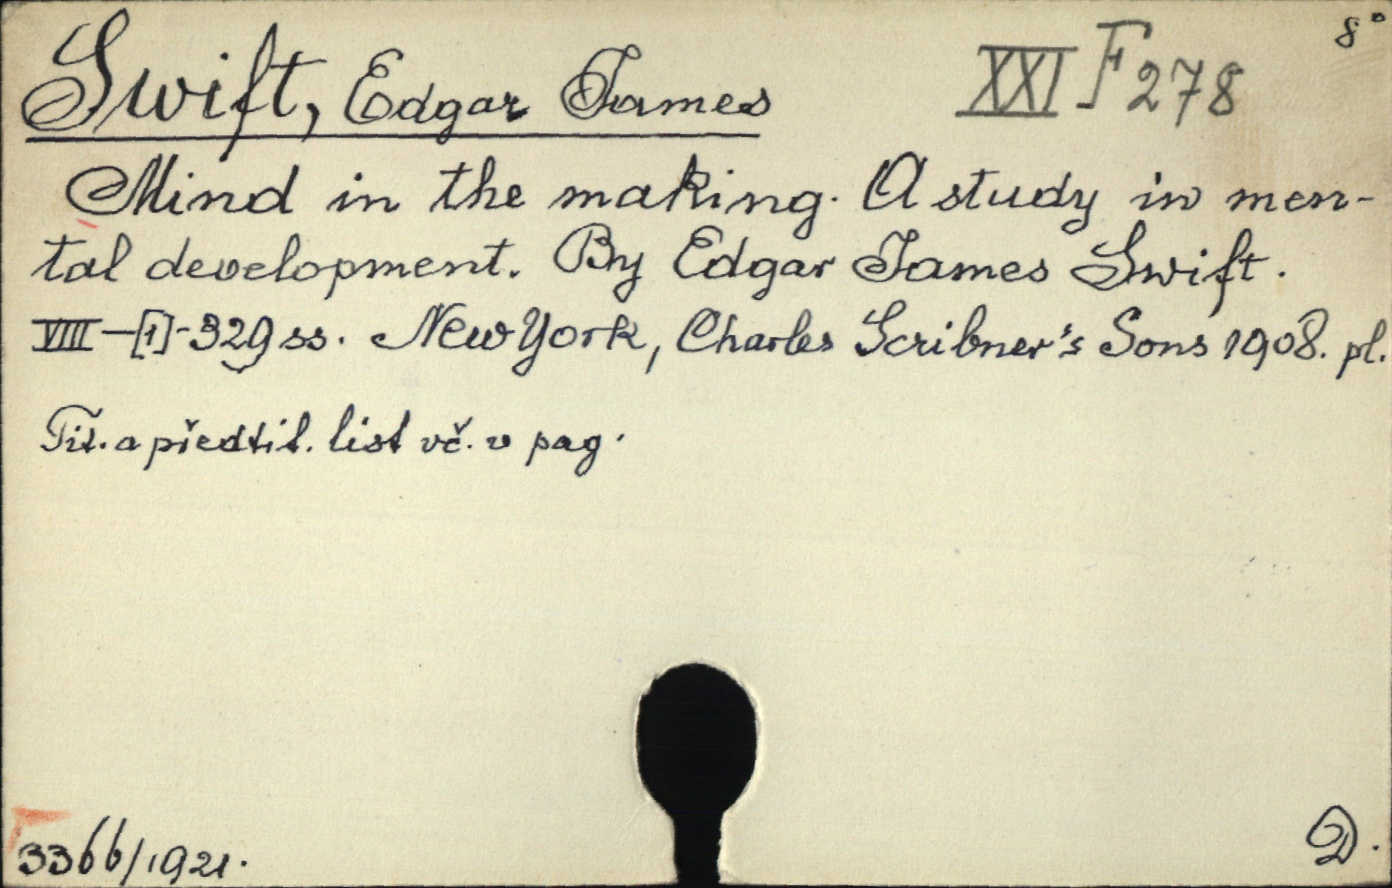 8°
Swift, Edgar James XXI F 278
Mind in the making. A study in men-
tal development. By Edgar James Swift.
VIII-[1]-329 ss. New York, Charles Scribner's Sons 1908. pl.
Tit. a předtit. list vč. v pag.
3366/1921.
D.